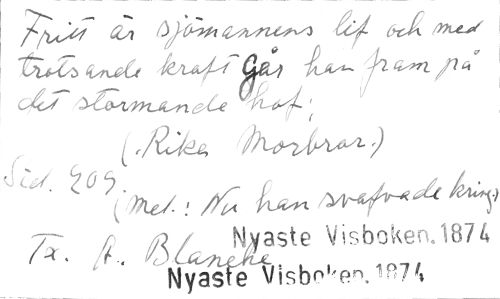 Fritt är sjömannens lif och med
trotsande kraft Går han fram på
det stormande haf;
(.Rika Morbror.)
Sid. 209.
(mel.: Nu han svafvade kring.)
Nyaste Visboken. 1874
Tx. A. Blanche
Nyaste Visboken. 1874